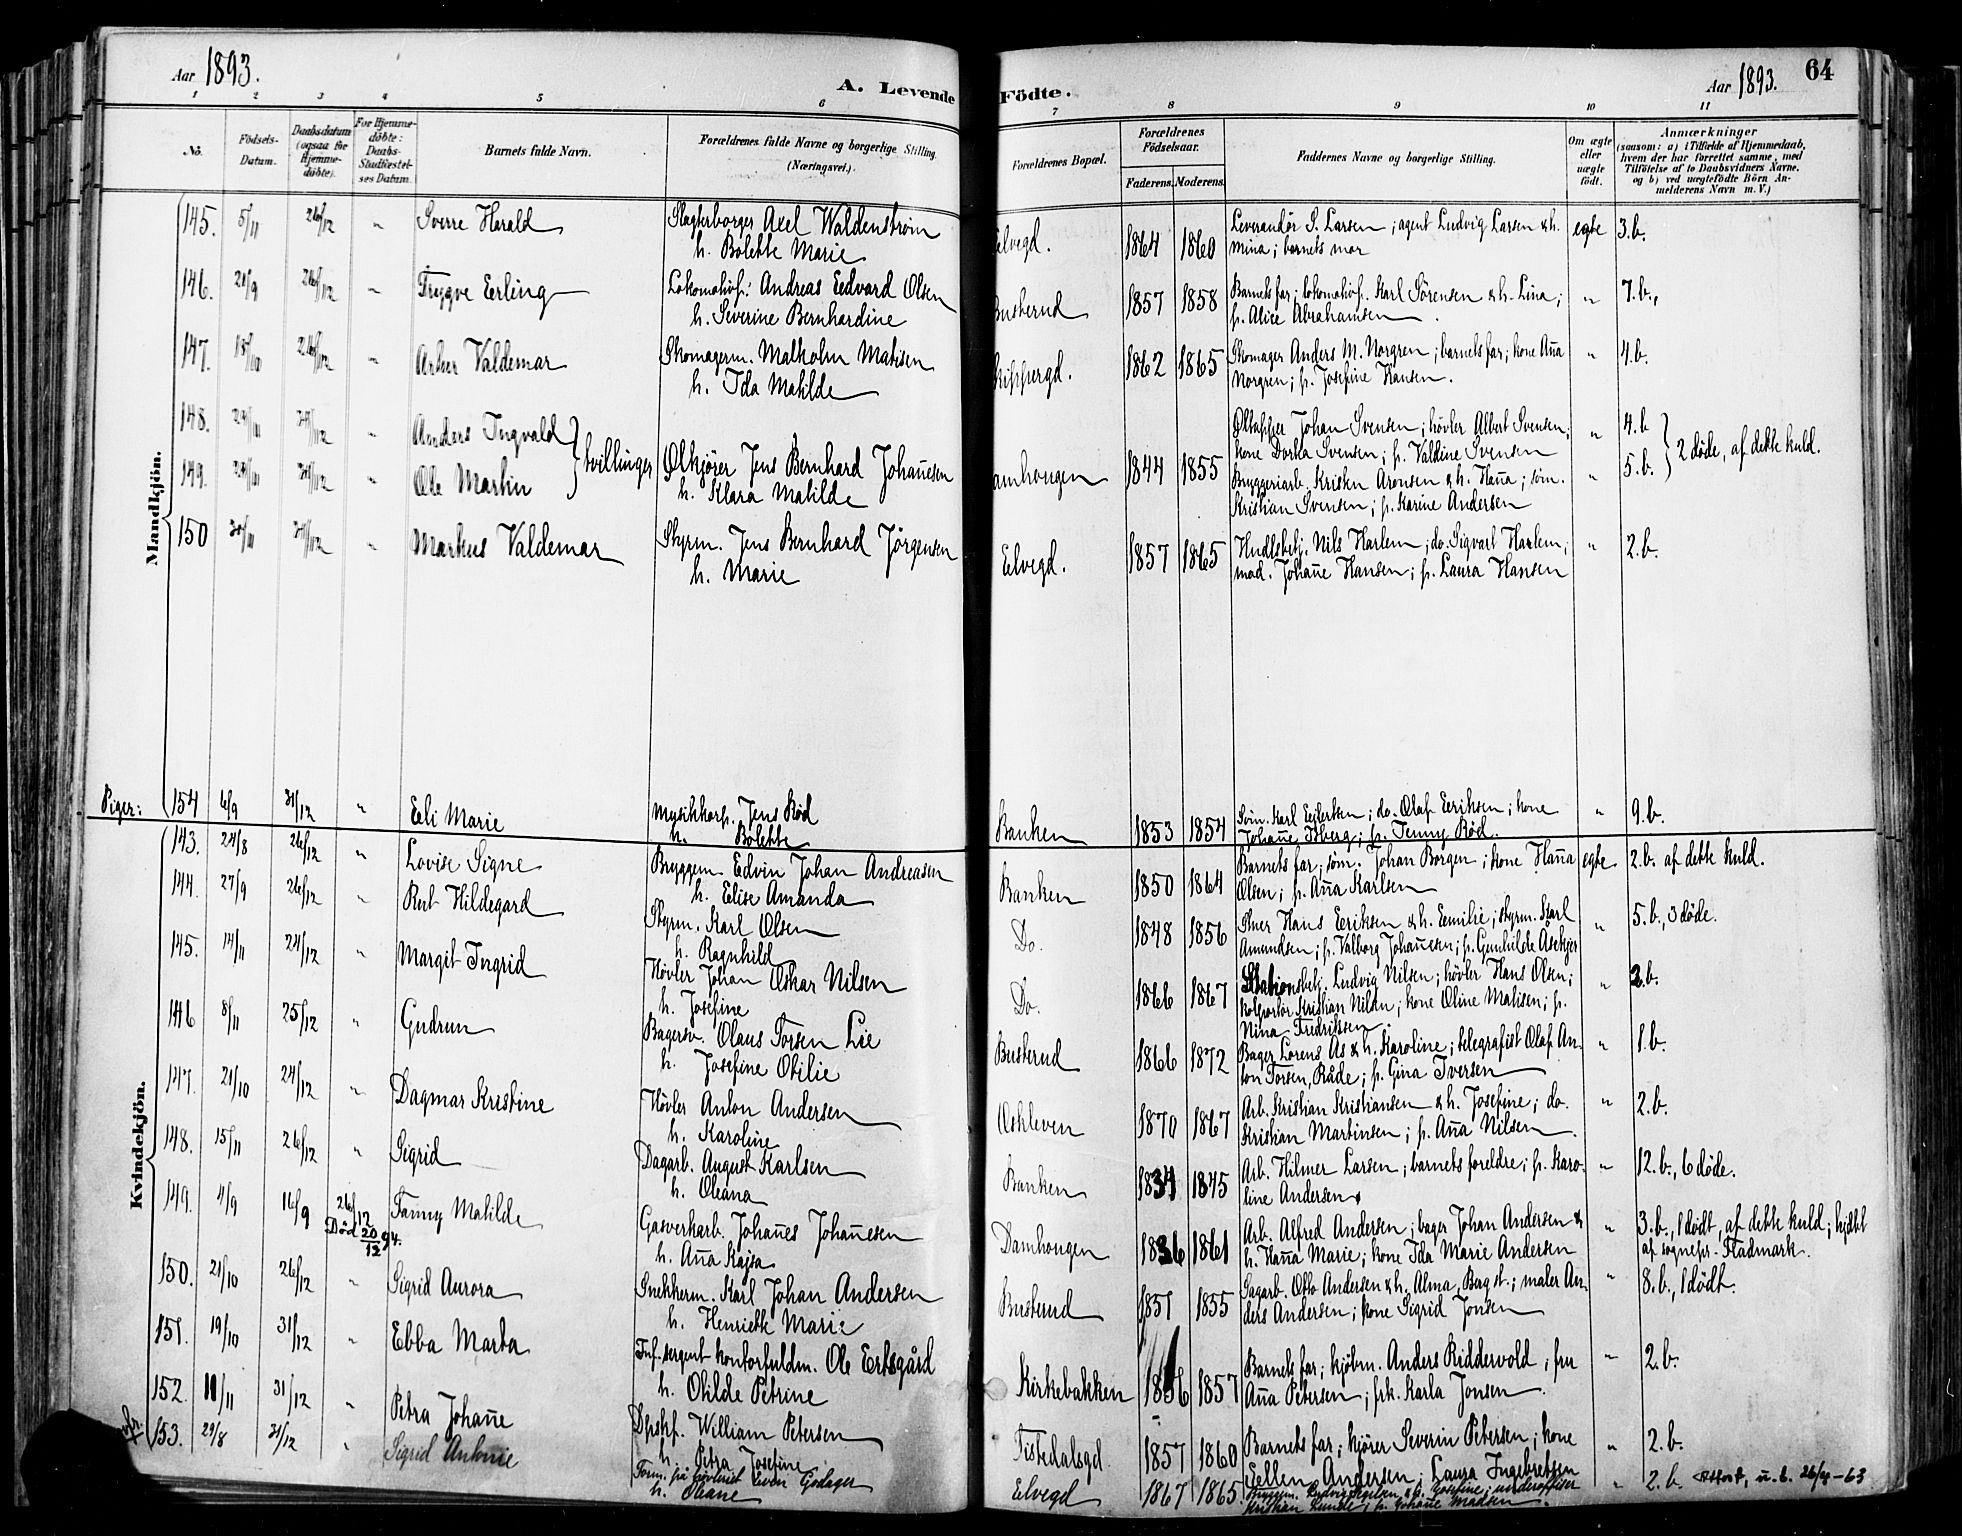 Aar 1893.
A. Levende Födte.
Aar 1893. 64
1 2 3 4 5 6 7 8 9 10 11
No.
Födsels-Datum.
Daabsdatum (ogsaa för Hjemme-döbte).
For Hjemme-döbte: Daabs-Stadfæstel-ses Datum.
Barnets fulde Navn.
Forældrenes fulde Navne og borgerlige Stilling.
(Næringsvei.)
Forældrenes Bopæl.
Forældrenes Födselsaar.
Faderens. Moderens.
Faddernes Navne og borgerlige Stilling.
Om ægte eller uægte födt.
Anmærkninger
(saasom: a) i Tilfælde af Hjemmedaab,
hvem der har forrettet samme, med
Tilföielse af to Daabsvidners Navne,
og b) ved uægtefödte Börn An-
melderens Navn m. V.)
Mandkjön.
145. 5/11 26/12 " Sverre Harald Slagterborger Axel Waldenstrøm
h. Bolette Marie
Elvegd. 1864 1860 Leverandør S. Larsen; agent Ludvig Larsen & h.
Mina; barnets mor
egte 3.b.
146. 21/9 26/12 " Trygve Erling Lokomotivf. Andreas Edvard Olsen
h. Severine Bernhardine
Busterud 1857 1858 Barnets far; lokomotivf. Karl Sörensen & h. Lina;
p. Alice Abrahamsen.
" 7.b.,
147. 15/10 26/12 " Valdemar Skomagerm. Malkolm Matisen
h. Ida Matilde
1862 1865 Skomager Anders M. Norgren; barnets far; kone Aña
Norgren; p. Josefine Hansen.
" 4.b.
148. 29/11 31/12 " Anders Ingvald
149. 29/11 31/12 " Ole Martin
tvillinger
Ølkjörer Jens Bernhard Johañesen
h. Klara Matilde
Damhougen 1844 1855 Øltapper Johan Svensen; hövler Albert Svensen;
kone Dorka Svensen; p. Valdine Svensen
Bryggeriarb. Kristen Aronsen & h. Haña; söm.
Kristian Svensen; p. Karine Andersen
" 4.b
" 5.b.
2 döde, af dette kuld.
150 30/11 31/12 " Markus Valdemar Styrm. Jens Bernhard Jörgensen
h. Marie
Elvegd. 1857 1865 Hndlsbetj. Nils Harlem; do. Sigvart Harlem;
mad. Johañe Hansen; p. Laura Hansen
" 2.b.
154 6/9 31/12 " Eli Marie Musikkorp. Jens Röd
h. Bolette
Banken 1853 1854 Söm. Karl Eilertsen; do. Olaf Eriksen; kone
Johañe Iberg; p. Jenny Röd.
" 9.b.
Piger:
Kvindekjön.
143. 24/8 26/12 " Lovise Signe Bryggem. Edvin Johan Andreasen
h. Elise Amanda
Banken 1850 1864 Barnets far; söm. Johan Borgen; kone Haña
Olsen; p. Aña Karlsen
egte 2.b. af dette kuld.
144. 27/9 26/12 " Rut Hildegard Styrm. Karl Olsen
h. Ragnhild
Do. 1848 1856 Hans Eriksen & h. Emilie; styrm. Karl
Amundsen; p. Valborg Johañesen; p. Gunhilde
" 5.b., 3 döde.
145. 14/11 24/12 " Margit Ingrid Hövler Johan Oskar Nilsen
h. Josefine
Do. 1866 1867 Stationsbetj. Ludvig Nilsen; hövler Hans Olsen;
kolportör Kristian Nilsen; kone Oline Matisen; p.
Nina Fredriksen.
" 2.b.
146 8/11 25/12 " Gudrun Bagersv. Olaus Torsen Lie
h. Josefine Otilie
Busterud 1866 1872 Bager Lorens As & h. Karoline; telegrafist Olaf An-
ton Torsen, Råde; p. Gina Iversen
" 1.b.
147. 21/10 24/12 " Dagmar Kristine Hövler Anton Andersen
h. Karoline
Oskleven 1870 1867 Arb. Kristian Kristiansen & h. Josefine; do.
Kristian Martinsen; p. Aña Nilsen.
" 2.b.
148. 15/11 26/12 " Sigrid Dagarb. August Karlsen
h. Oleana
Banken 1834 1845 Arb. Hilmer Larsen; barnets foreldre; p. Karo-
line Andersen
" 12.b., 6 döde.
149. 4/9 16/9 26/12 Fanny Matilde
Död 20/12 94.
Gasverkarb. Johañes Johañesen
h. Aña Kajsa
Damhougen 1836 1861 Arb. Alfred Andersen; bager Johan Andersen &
h. Haña Marie; kone Ida Marie Andersen
" 3.b., 1 dödt, af dette kuld; hjdbt
af sognepr. Fladmark.
150. 21/10 26/12 " Sigrid Aurora Snekkerm. Karl Johan Andersen
h. Henriette Marie
Busterud 1851 1855 Sagarb. Otto Andersen & h. Alma, Bagst.; maler An-
ders Andersen; kone Sigrid Jonsen
" 8.b., 1 dödt.
151. 19/10 31/12 " Ebba Marta Inf. sergent kontorfuldm. Ole Ertsgård
h. Otilde Petrine
Kirkebakken 1856 1857 Barnets far; kjöbm. Anders Riddervold; fru
Aña Petersen; frk. Karla Jonsen.
" 2.b.
152. 11/11 31/12 " Petra Johañe Dpskf. William Petersen
h. Petra Josefine
Tistedalsgd 1857 1860 Barnets far; kjörer Severin Petersen; kone
Ellen Andersen; Laura Ingebretsen
" 2.b.
153. 29/8 31/12 " Sigrid Antonie Form. på høvleriet Even Godager
h. Oleane
Elvegd 1867 1865 Bryggm. Ludvig & h. Josefine; underoffiser
Kristian Lunde; p. Johañe Madsen.
" 2.b. Attest, u.b. 26/4-63